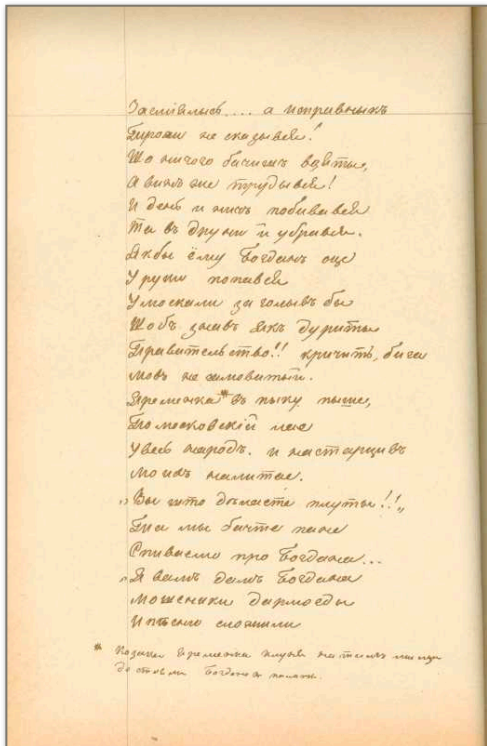 Засміялысь.... а исправныкъ
Трохы не сказывся!
Що ничого бачишъ взяты,
А винъ же трудывся!
И день и ничь побивався
Та въ друни й убрався.
Якбы ёму Богданъ оце
У руки попався
У москали заголывъ бы
Щобъ знавъ якъ дурыты
Правительство!! кричить, бига
Мовъ не самовытый.
Яременка * въ пыку пыше,
По московскій лае
Увесь народъ. и настарщивъ
Моихъ налитае.
„Вы что делаете плуты!!„
Та мы бачте пане
Спиваемо про Богдана...
„Я вамъ дамъ Богдана
Мошеники дармоеды
И песню сложили
* Козакъ Яременка на тимъ мисци